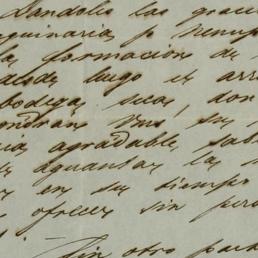 Dandole las graci
quinaria y
la formacion de
desde luego es arr
bodega seca, don
ondran Vms su
ua agradable, sab
de aguantar la
en su tiempo
ofrecer sin per
Sin otro parti